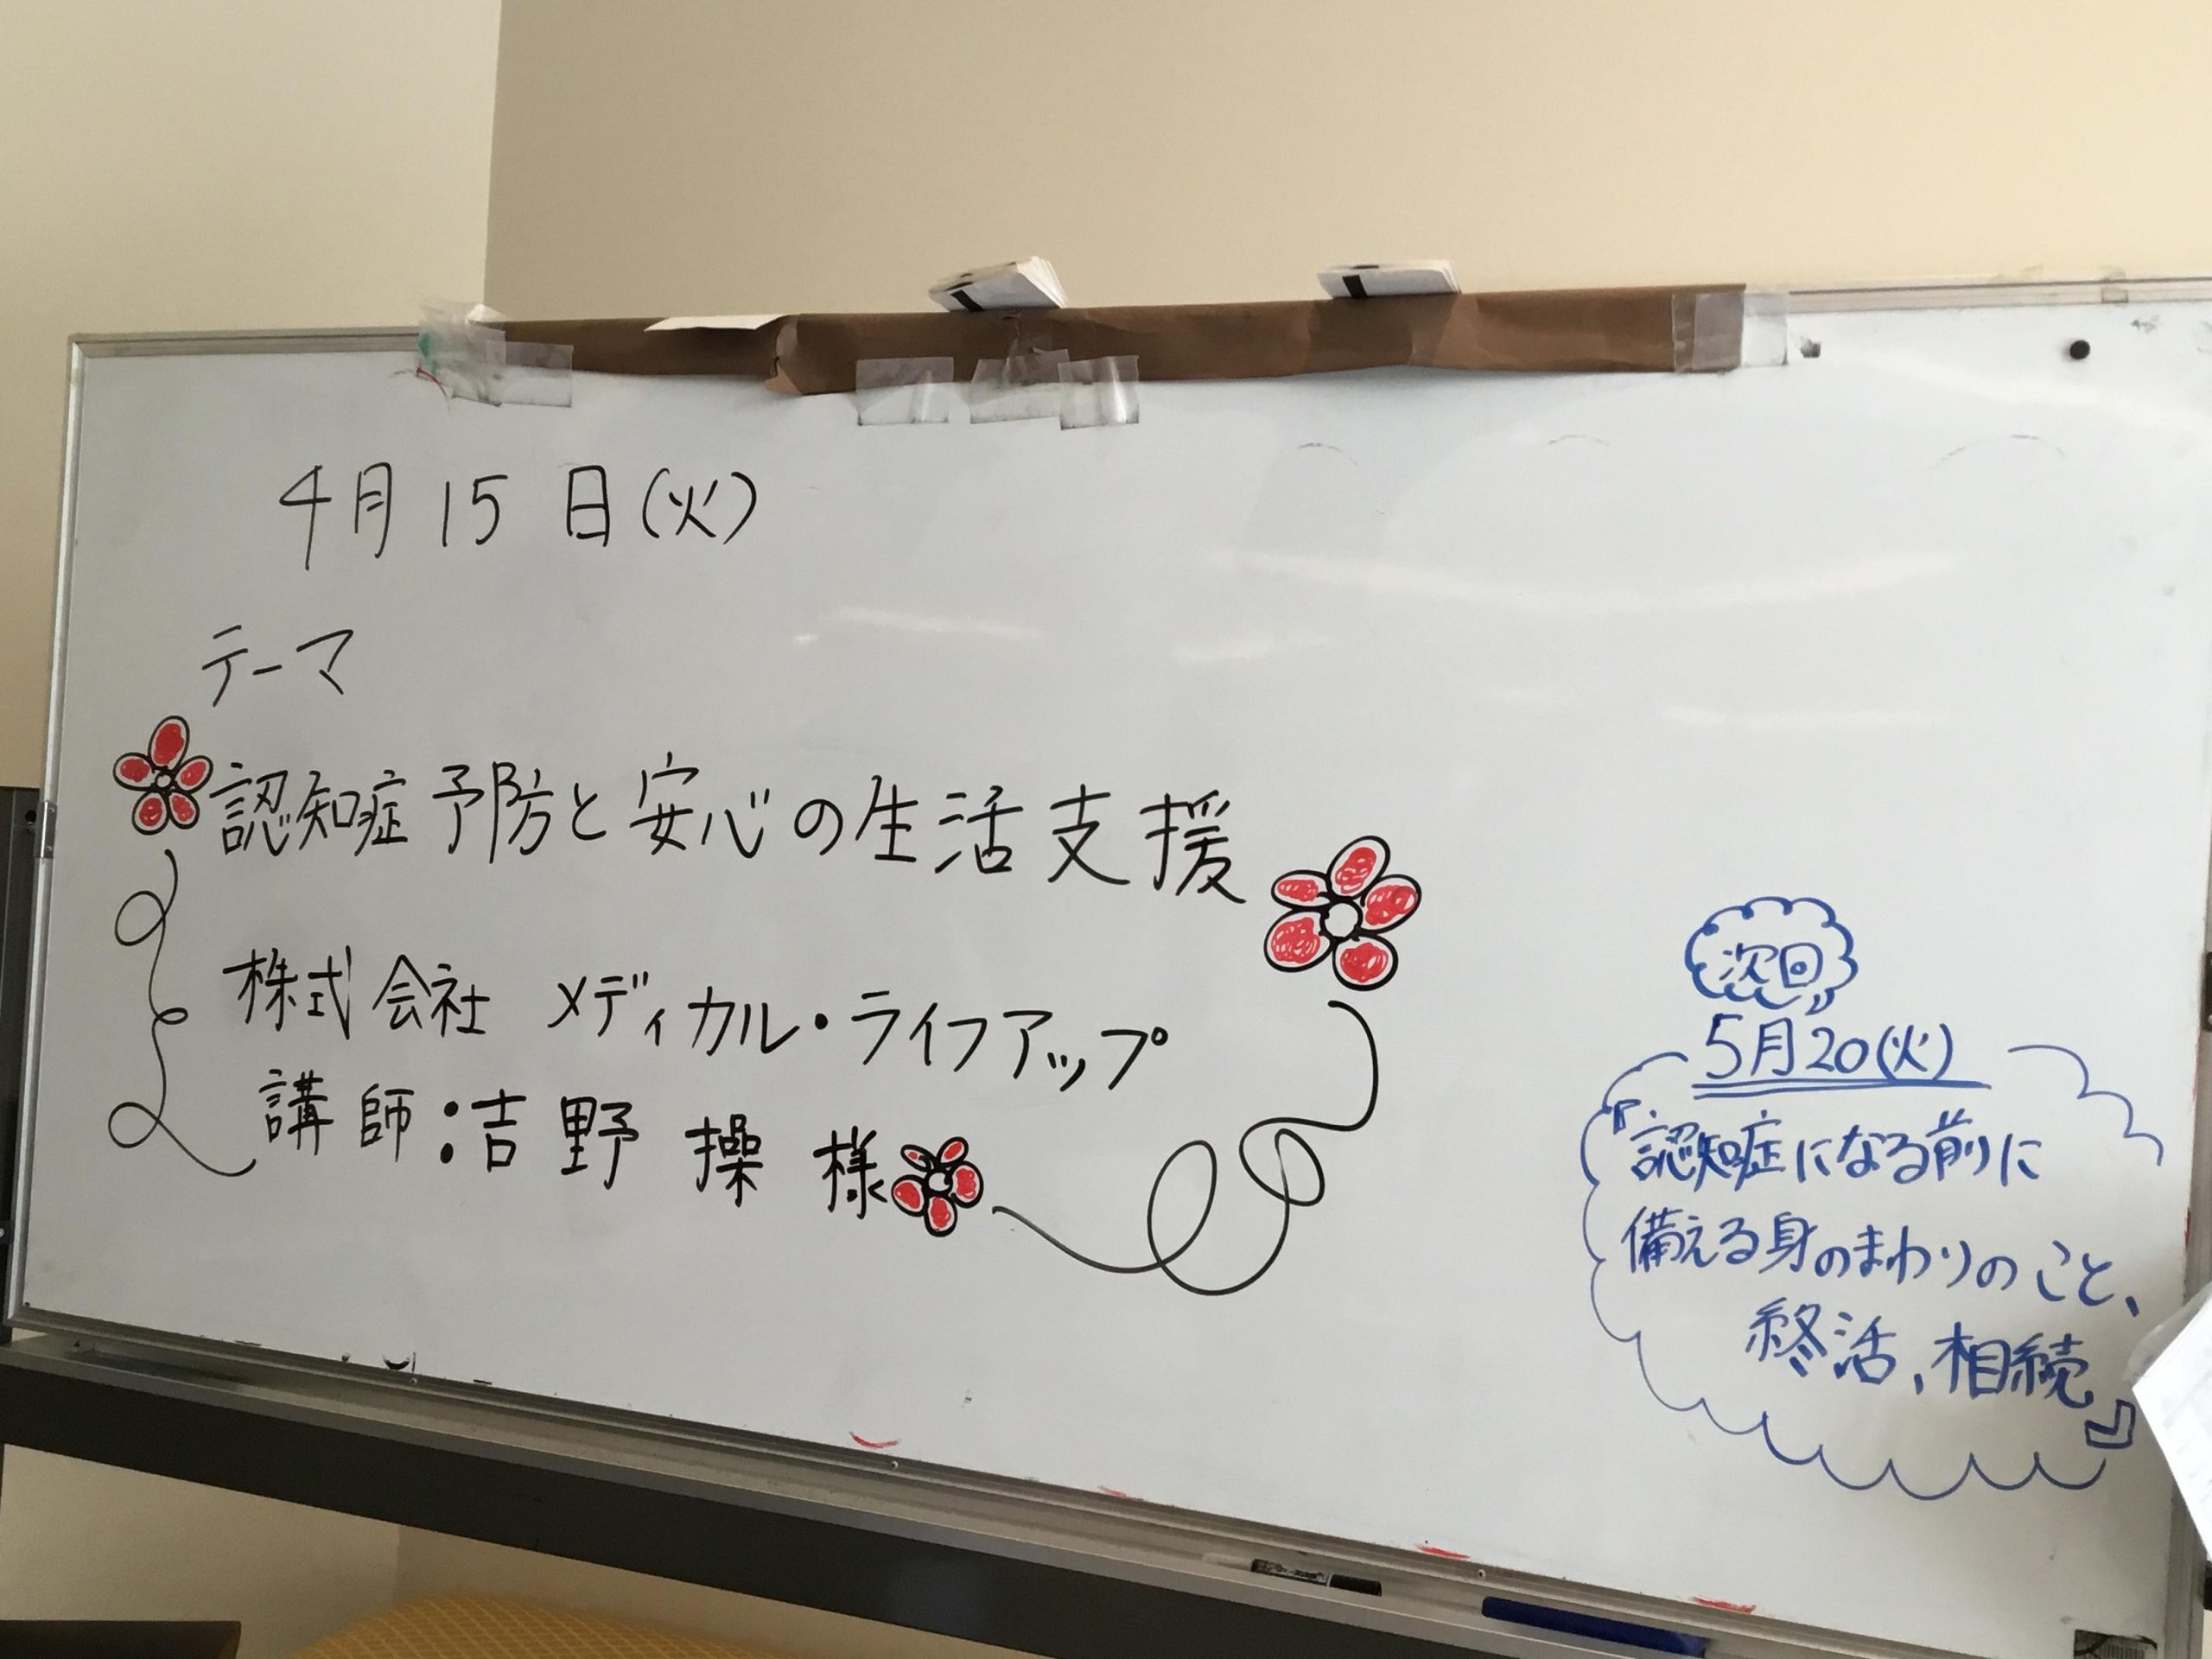 4月15日(火)
テーマ
認知症予防と安心の生活支援
株式会社 メディカル・ライフアップ
講師:吉野 操 様
次回
5月20(火)
『認知症になる前に
備える身のまわりのこと、
終活、相続』